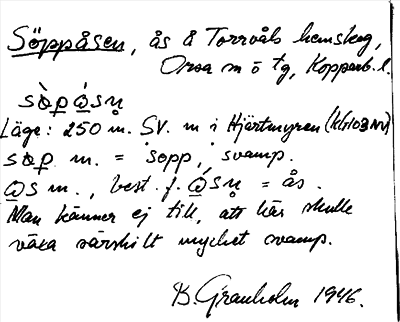 Söppåsen, ås å Torrvåls hemskog,
Orsa sn ö tg, Kopparb. l.
sò̀p ǻsn̥
Läge: 250 m. SV. m i Hjärtmyren
sop m. = sopp, svamp.
ås m., best. f. ǻsn̥ = ås.
Man känner ej till, att här skulle
växa särskilt mycket svamp.
B. Granholm 1946.